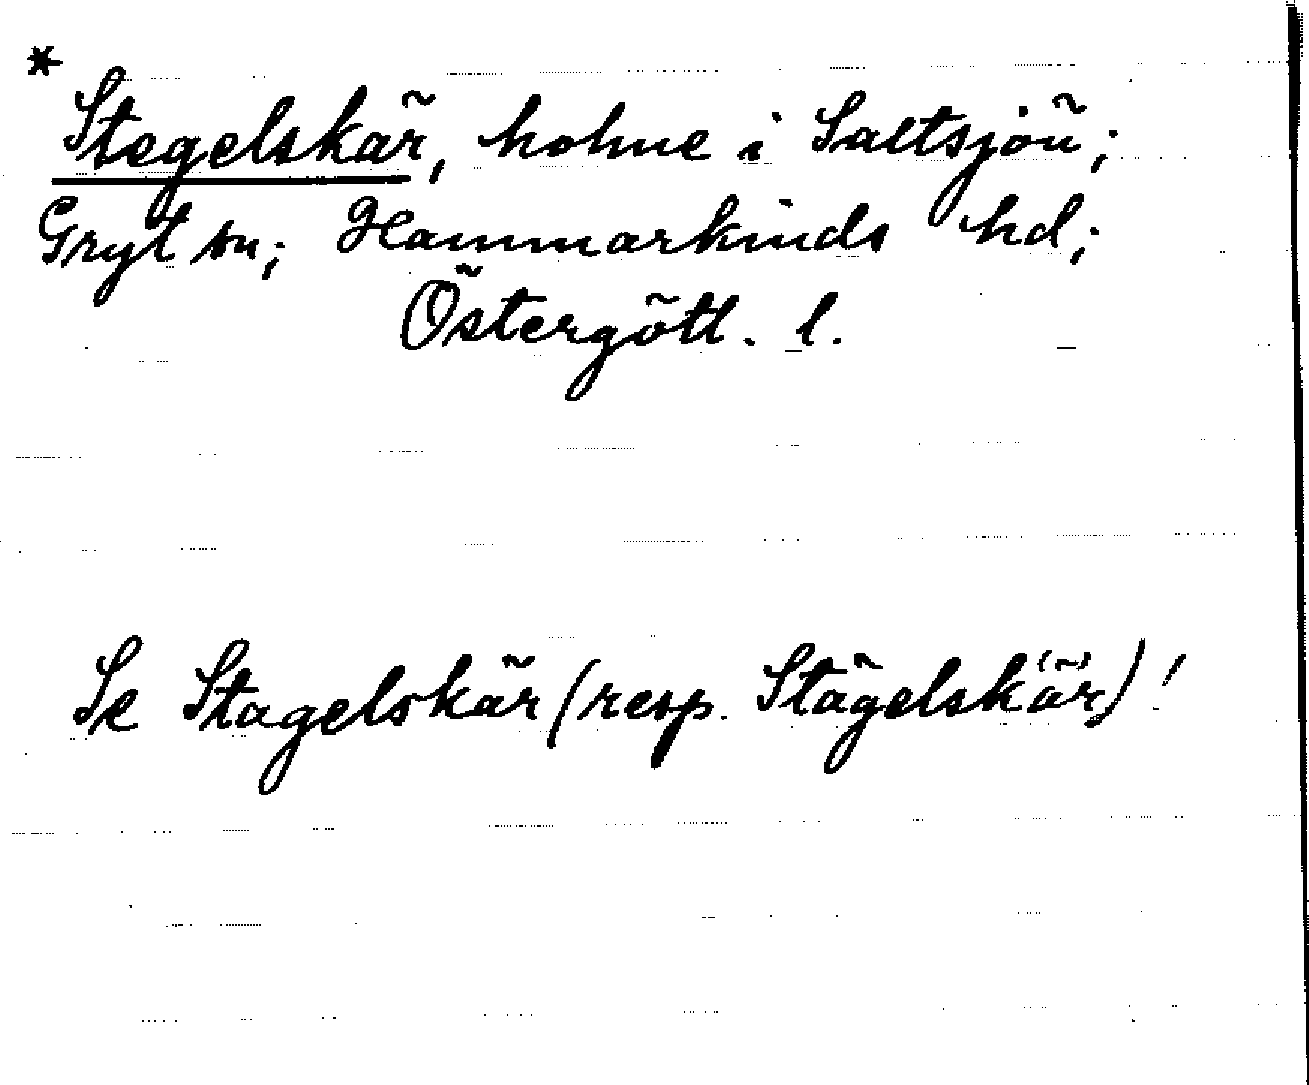 * Stegelskär, holme i Saltsjön;
Gryt sn; Hammarkinds hd;
Östergötl. l.
Se Stagelskär (resp. Stägelskär)!